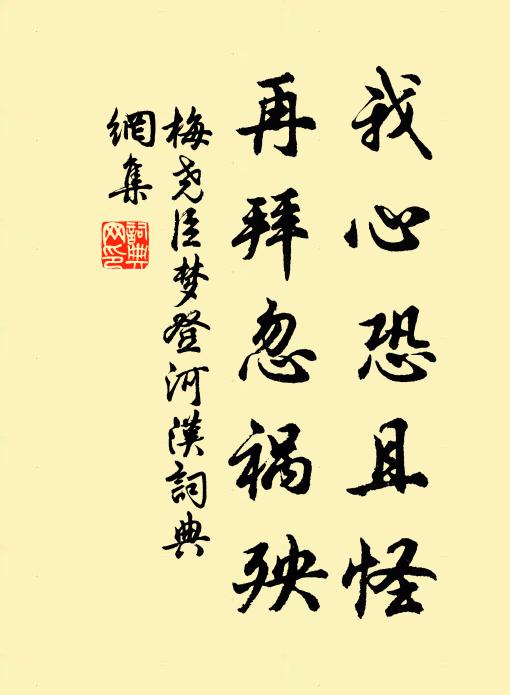 我心恐且怪
再拜忽祸殃
梅尧臣梦登河漢詞典
網集
詞典
网印